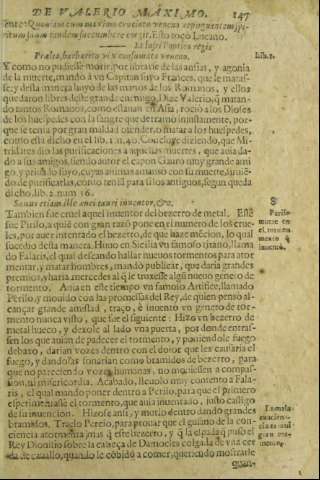 DE VALERIO MAXIMO. 147
Y como no pudiesse morir, por librarse de las ansias, y agonia
de la muerte, mandò à vn Capitan suyo Frances, que le matas-
se; y desta manera huyò de las manos de los Romanos, y ellos
que daron libres deste grande enemigo. Dize Valerio, q̃ matan-
do tantos Romanos, como estauan en Asia, rociò los Dioses
de los huespedes con la sangre que derramò injustamente, por-
que se tenia por gran maldad ofender, o matar a los huespedes,
como està dicho en el lib. 2. n. 40. Concluye diziendo, que Mi-
tridates dio las purificaciones a aquellas muertes, que auia da-
do a sus amigos, siendo autor el capon Gauro muy grande ami-
go, y priuado suyo, cuyas
do de purificarlas, como tenia para si los antiguos, segun queda
dicho, lib. 2. num. 16.
Sæuus etiam ille ænei tauri inuentor, &c.
Tambien fue cruel aquel inuentor del bezerro de metal. Este
fue Pirilo, a quiẽ con gran razõ pone en el numero de los crue-
les, por auer inuentado el bezerro, de que haze mẽcion, lo qual
sucedio desta manera. Huuo en Sicilia vn famoso tirano, llama
do Falaris, el qual descando hallar nueuos tormentos para ator
mentar, y matar hombres, mandò publicar, que daria grandes
premios, y haria mercedes al q̃ le truxesse algũ nueuo genero de
tormento. Auia en este tiempo vn famoso Artifice, llamado
Perilo, y mouido con las promessas del Rey, de quien pensò al-
cançar grande amistad, traçò, è inuentò vn genero de tor-
mento nunca visto, que fue el siguiente: Hizo vn bezerro de
metal hueco, y dexole al lado vna puerta, por donde entras-
sen los que auian de padecer el tormento, y poniendole fuego
debaxo, darian vozes dentro con el dolor que les causaria el
fuego, y dando las sonarian como bramidos de bezerro, para
que no pareciendo vozes humanas, no mouiessen a compas-
sion, ni misericordia. Acabado, lleuolo muy contento a Fala-
ris, el qual mandò poner dentro a Perilo, para que el primero
esperimentasse el tormento, que auia inuentado, justo castigo
de su inuencion. Hizose ansi, y murio dentro dando grandes
bramidos. Traelo Persio, para prouar que el gusano de la con-
ciencia atormẽta mas q̃ este bezerro, y q̃ la espada q̃ puso el
Rey Dionisio sobre la cabeça de Damocles colgada de vna cer
da de cauallo, quando le cõbidò a comer, queriendo mostrarle
quan
8
Perilo
murio en
el tormẽ
mento q̃
inuentò.